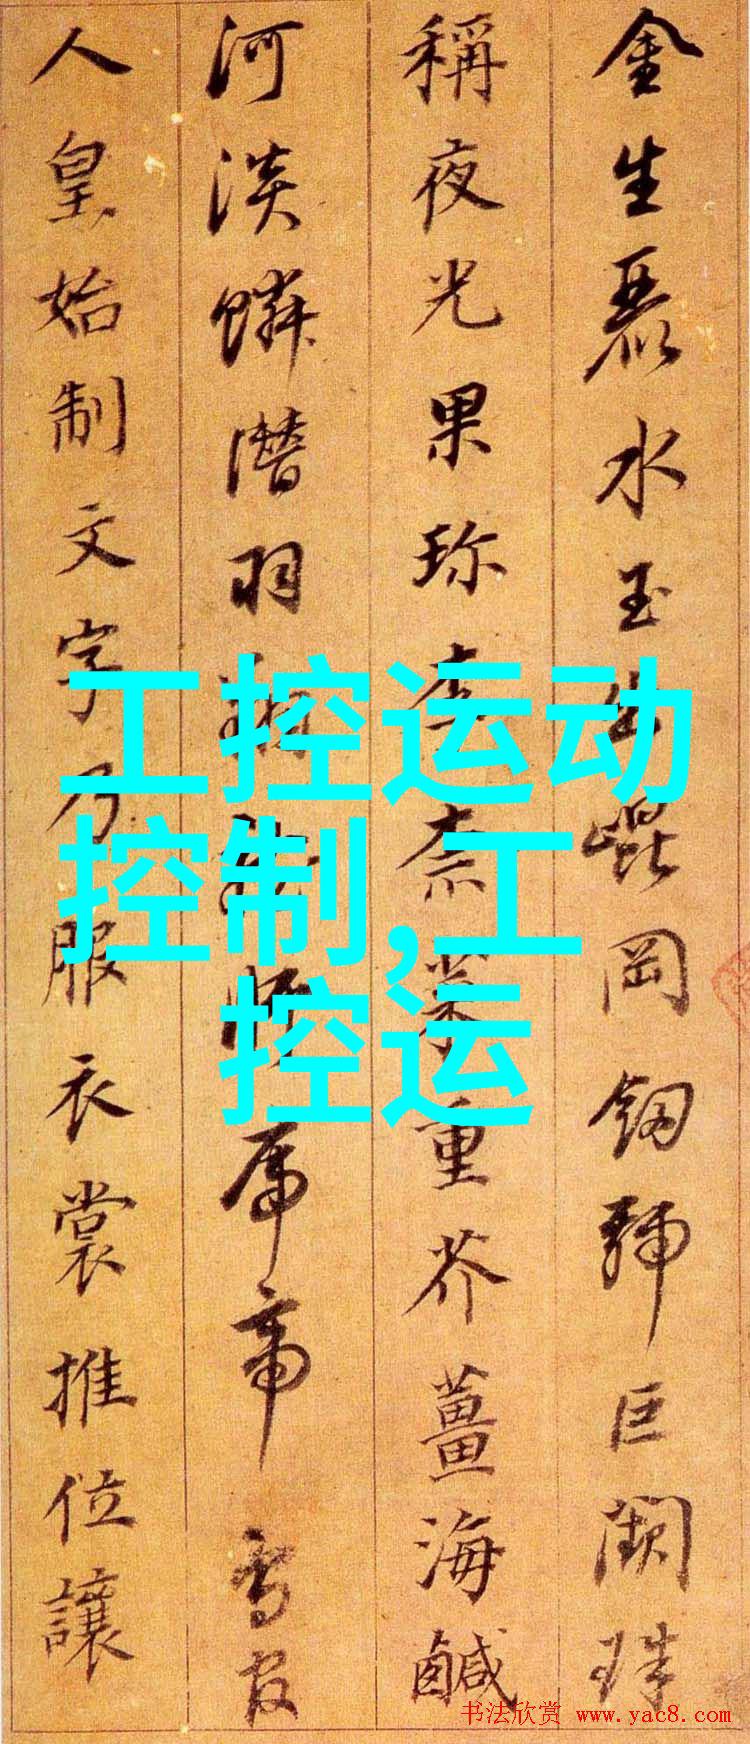 金生麗水玉出崐岡釼號巨闕珠
稱夜光果珎李柰菜重芥薑海鹹
河淡鱗潛羽翔龍師帝鳥官
人皇始制文字乃服衣裳推位讓
工控运动
控制,工
控运
书法欣赏 www.yac8.com